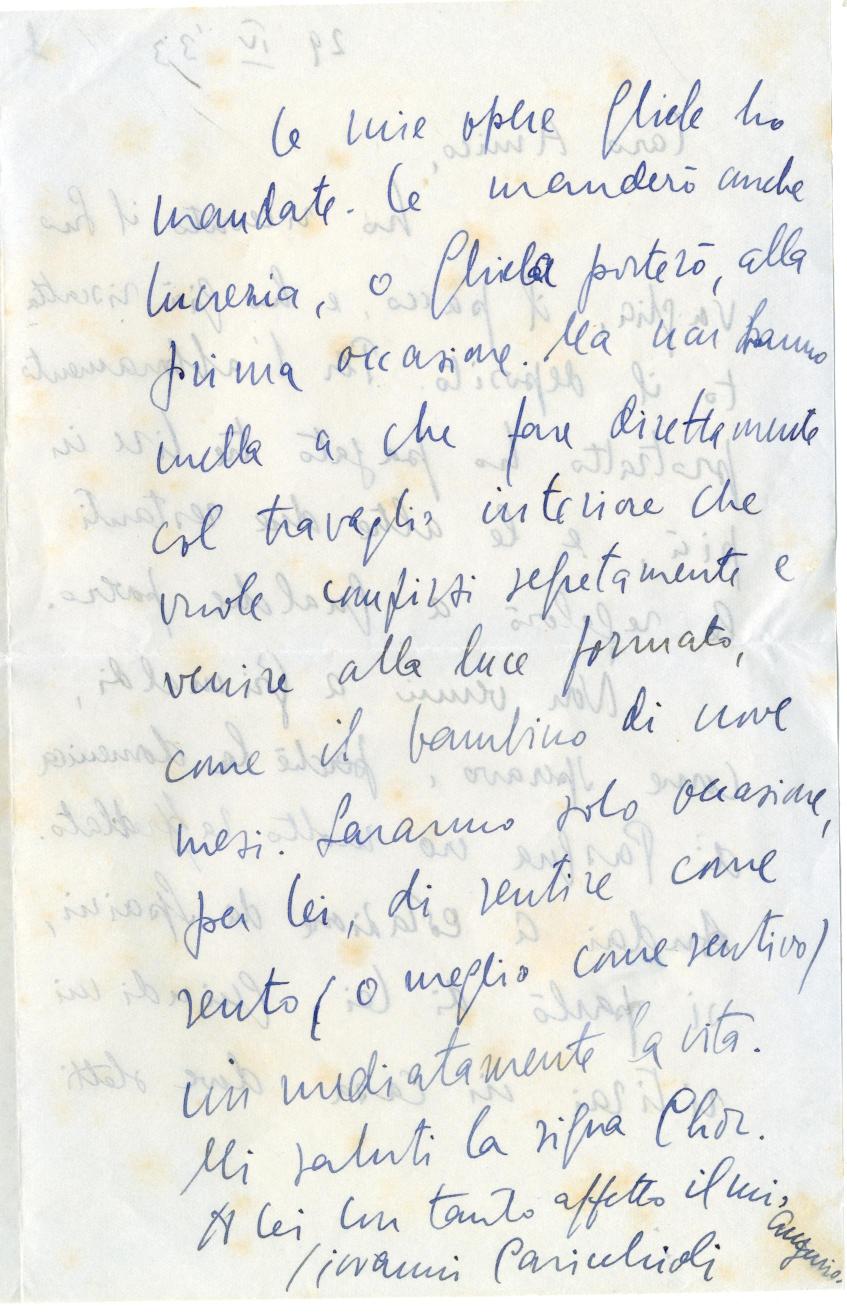 Le mie opere Gliele ho
mandate. Le manderò anche
Lucrezia, o Gliela porterò, alla
prima occasione. Ma non hanno
nulla a che fare direttamente
col travaglio interiore che
vuole compirsi segretamente e
venire alla luce formato,
come il bambino di nove
mesi. Saranno solo occasione,
per Lei, di sentire come
sento (o meglio come sentivo)
immediatamente la vita.
Mi saluti la sigra
A Lei con tanto affetto il mio
augurio.
Giovanni